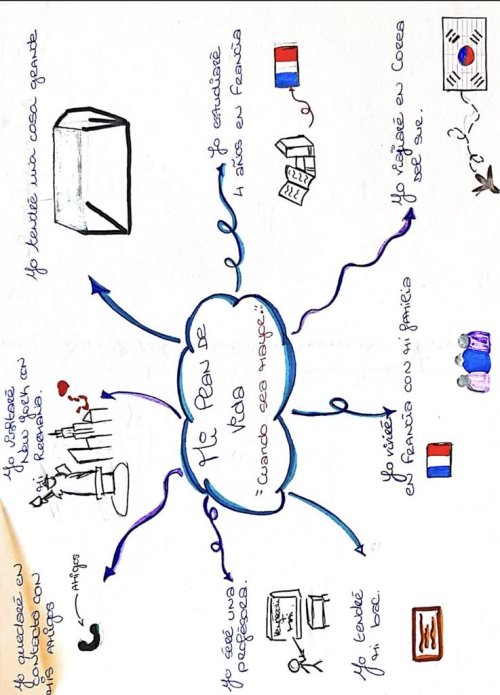 Mi Plan De
Vida
"Cuando sea mayor"
Yo quedaré en
contacto con
mis amigos
Amigos
Yo visitaré
New York con
mi
Hermana.
Yo tendré una casa grande
Yo estudiaré
4 años en Francia
Yo viajaré en Corea
del sur.
Yo viviré
en Francia con mi familia
Yo tendré
mi bac.
Yo séré una
profésora.